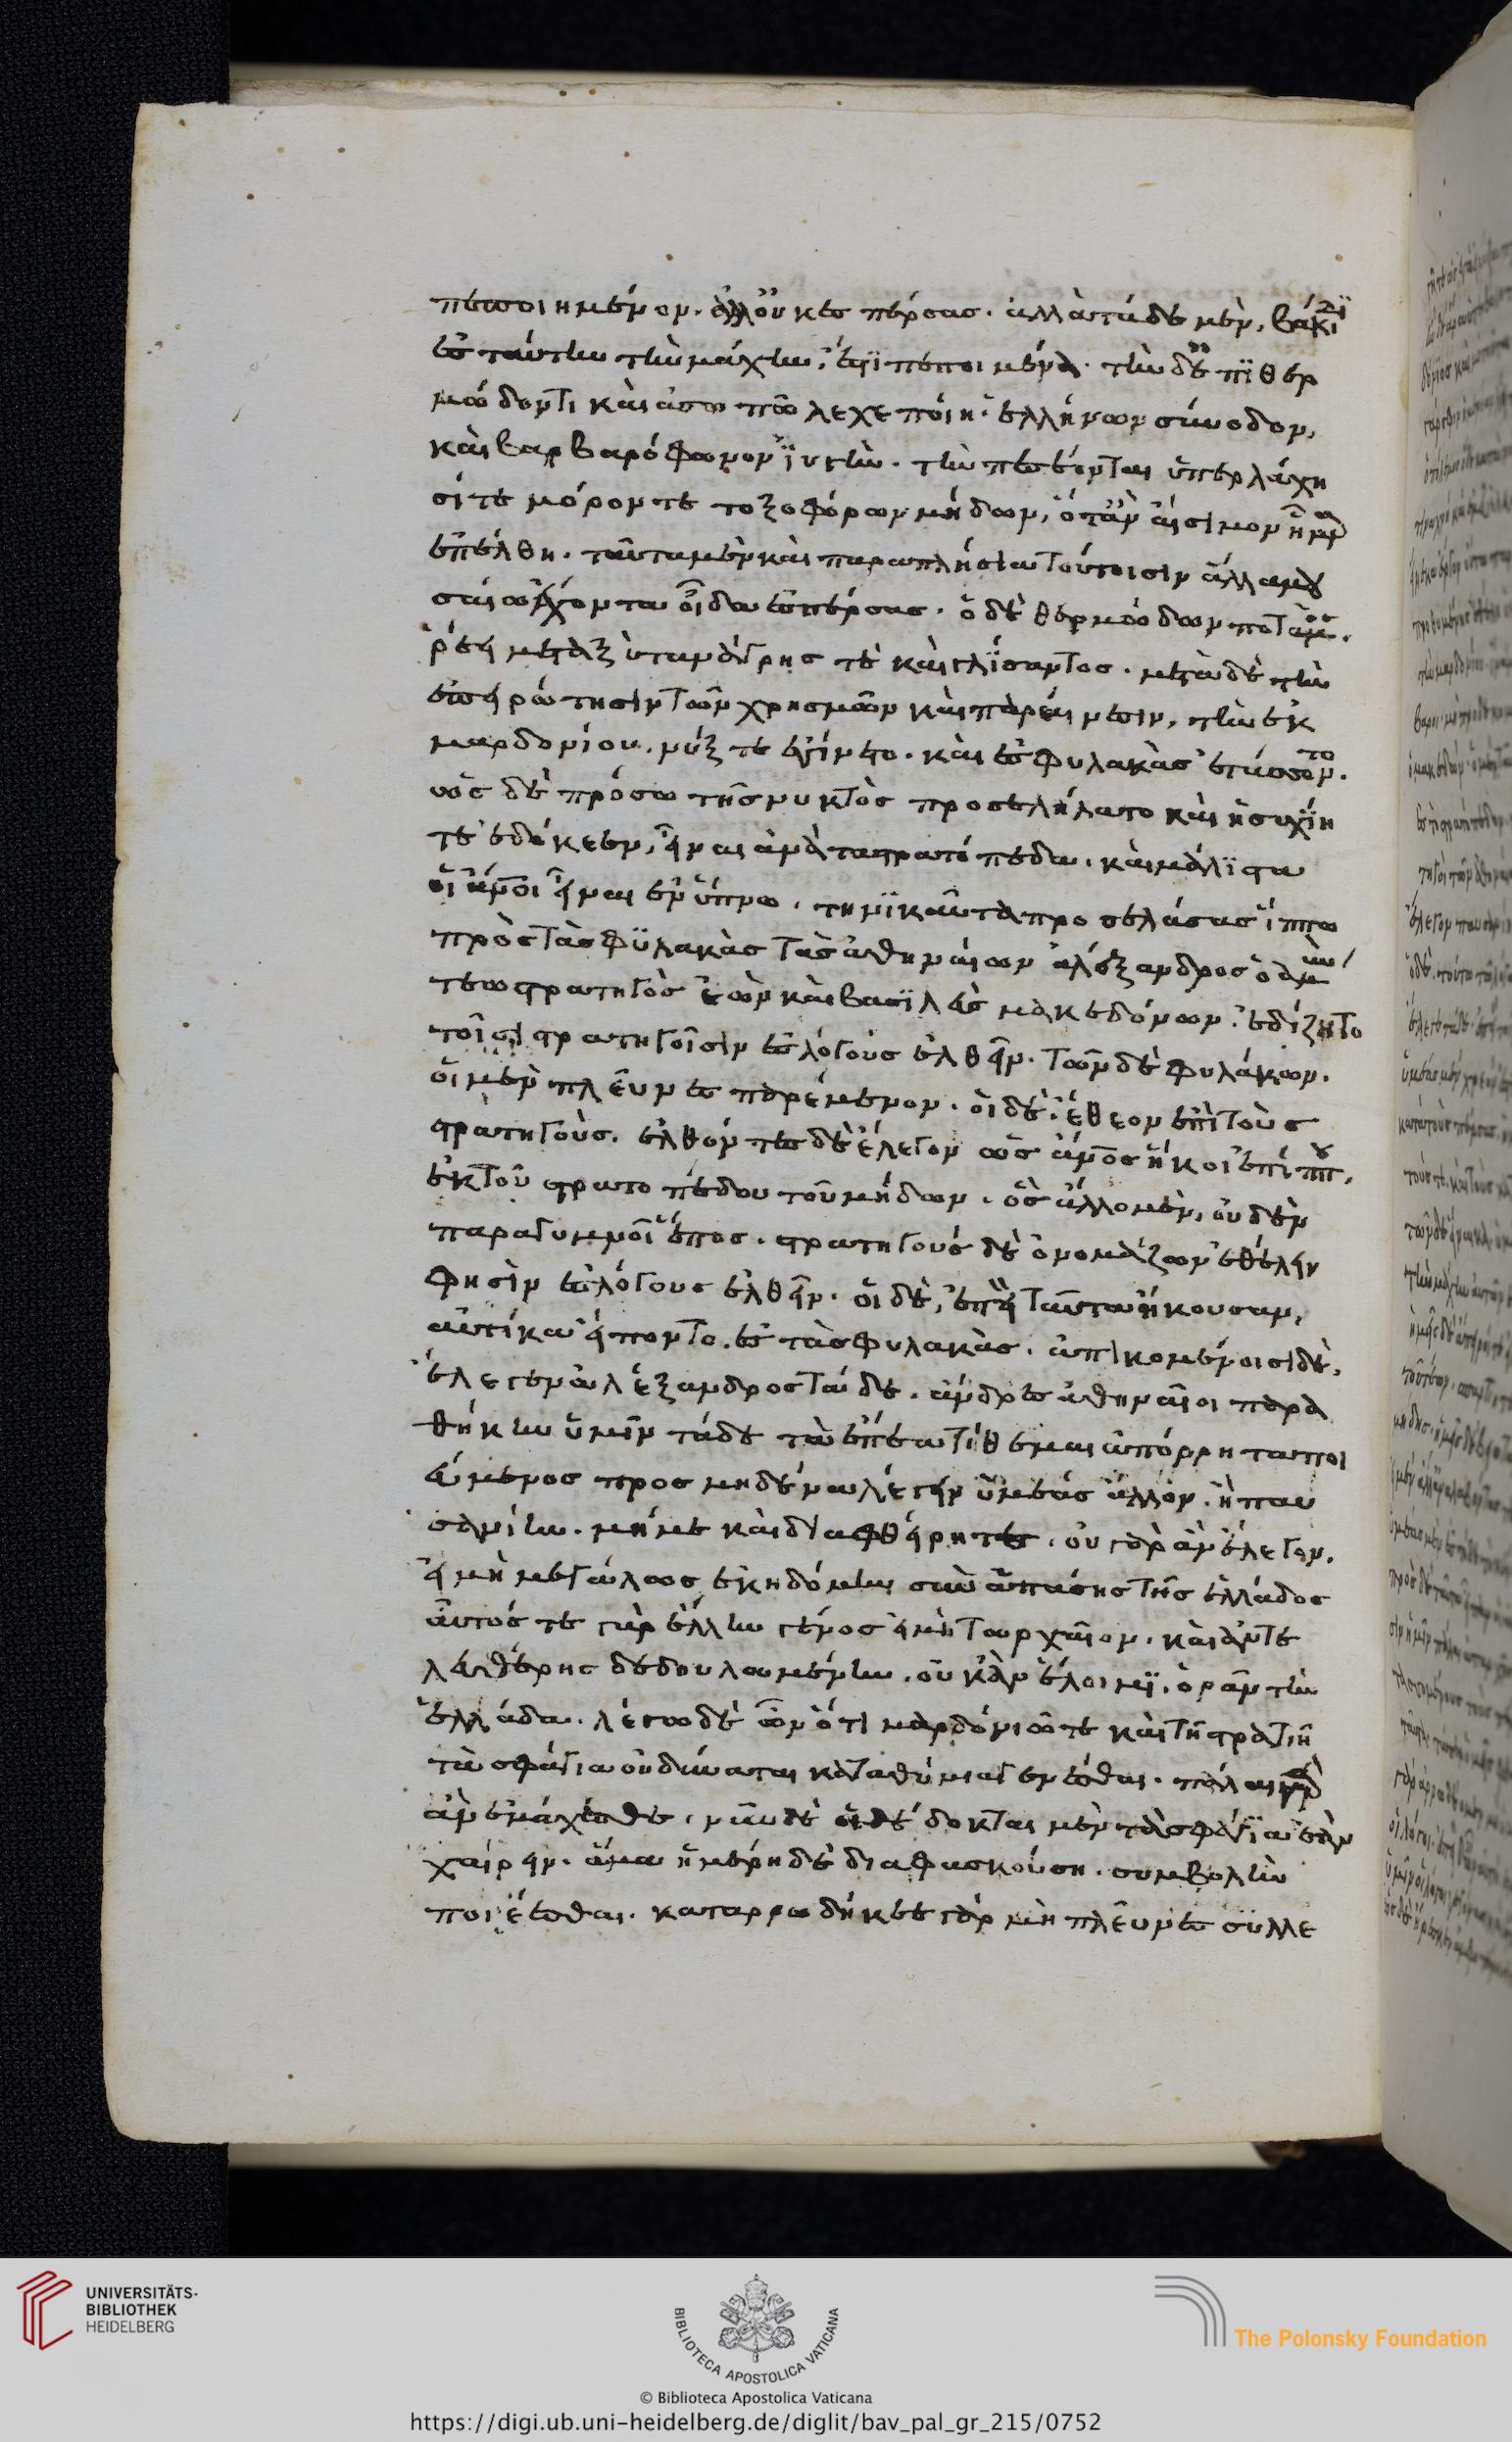 πεποιημένον. ἀλλ' οὐκ ἐς πέρσας. ἀλλὰ τάδε μὲν, βάκιδι
ἐς ταύτην τὴν μάχην, ἐστὶ πεποιημένα. τὴν δ' ἐπὶ θερ
μώδοντι καὶ ἀσωπῶ λεχεποίη. ἑλλήνων σύνοδον,
καὶ βαρβαρόφωνον ἰυγὴν. τῆ πεσέονται ὑπὲρ λάχη
σίν τε μόρον τε τοξοφόρων μήδων, ὅταν αἴσιμον ἦμαρ
ἐπέλθη. ταῦτα μὲν καὶ παραπλήσια τούτοισιν ἄλλα μου
σαίω ἔχοντα οἶδα ἐς πέρσας. ὁ δὲ θερμώδων ποταμὸς.
ῥέει μεταξὺ τανάγρης τὲ καὶ γλίσαντος. μετὰ δὲ τὴν
ἐπειρώτησιν τῶν χρησμῶν καὶ παραίνεσιν, τὴν ἐκ
μαρδονίου. νύξ τε ἐγίνετο. καὶ ἐς φυλακὰς ἐτάσσοντο.
ὡς δὲ πρόσω τῆς νυκτὸς προσελήλατο καὶ ἡσυχίη
τε ἐδόκεεν, εἶναι ἀνὰ τὰ στρατόπεδα. καὶ μάλιστα
οἱ ἄνθρωποι εἶναι ἐν ὕπνω. τηνικαῦτα προσελάσας ἵππω
πρὸς τὰς φυλακὰς τὰς ἀθηναίων ἀλέξανδρος ὁ ἀμύν
τεω στρατηγὸς ἐὼν καὶ βασιλεὺς μακεδόνων. ἐδίζητο
τοῖσι στρατηγοῖσιν ἐς λόγους ἐλθεῖν. τῶν δὲ φυλάκων.
οἱ μὲν πλεῦνες παρέμενον. οἱ δὲ. ἔθεον ἐπὶ τοὺς
στρατηγοὺς. ἐλθόντες δὲ ἔλεγον ὡς ἄνθρωπος ἥκοι ἐπ' ἵππου,
ἐκ τοῦ στρατοπέδου τοῦ μήδων. ὃς ἄλλο μὲν, οὐδὲν
παραγυμνοῖ ἔπος. στρατηγοὺς δὲ ὀνομάζων ἐθέλειν
φησὶν ἐς λόγους ἐλθεῖν. οἱ δὲ, ἐπεὶ ταῦτα ἤκουσαν,
αὐτίκα εἵποντο. ἐς τὰς φυλακὰς. ἀπικομένοισι δὲ,
ἔλεγεν ἀλέξανδρος τάδε. ἄνδρες ἀθηναῖοι παρα
θήκην ὑμῖν τάδε τὰ ἔπεα τίθεμαι ἀπόρρητα ποι
εύμενος προς μηδένα λέγειν ὑμέας ἄλλον. ἢ παυ
σανίην. μή με καὶ διαφθείρητε. οὐ γὰρ ἂν ἔλεγον.
εἰ μὴ μεγάλως ἐκηδόμην συναπάσης τῆς ἑλλάδος
αὐτός τε γὰρ ἕλλην γένος εἰμὶ τὠρχαῖον. καὶ ἀντε
λευθέρης δεδουλωμένην. οὐκ ἂν ἐθέλοιμι. ὁρᾶν τὴν
ἑλλάδα. λέγω δὲ ὦν ὅτι μαρδονίω τε καὶ τῆ στρατιῆ
τὰ σφάγια οὐ δύναται καταθύμια γενέσθαι. πάλαι γὰρ
ἂν ἐμάχεσθε. νῦν δὲ οἱ δέδοκται μὲν τὰ σφάγια ἐᾶν
χαίρειν. ἅμα ἡμέρη δὲ διαφασκούση. συμβολὴν
ποιέεσθαι. καταρρώδηκέ γὰρ μὴ πλεῦνες συλλε
UNIVERSITÄTS-
BIBLIOTHEK
HEIDELBERG
BIBLIOTECA APOSTOLICA VATICANA
The Polonsky Foundation
© Biblioteca Apostolica Vaticana
https://digi.ub.uni-heidelberg.de/diglit/bav_pal_gr_215/0752